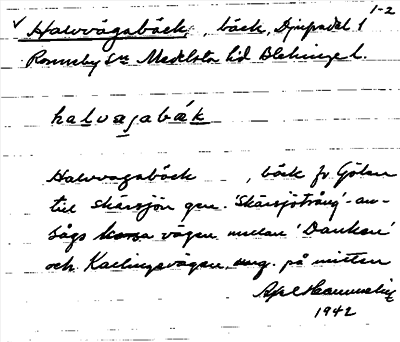 1-2
✓ Halvvägsbäck, bäck, Djupadal 1
Ronneby Sn Medelsta hd Blekinge l.
halvagabák
Halvvägsbäck, bäck fr. Gölen
till Skärsjön gm. 'Skärsjötrång' an-
sågs korsa vägen mellan 'Dansken'
och Kallingevägen, ung. på mitten
Axel Hammelin
1942